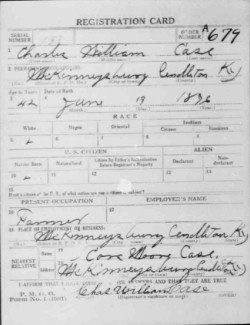 REGISTRATION CARD
SERIAL NUMBER
ORDER NUMBER A679
Charlie William Case
McKinneysburg Pendleton Ky
Age in Years
42 June 19 1876
RACE
White Negro Oriental Indian
Citizen Noncitizen
U. S. CITIZEN ALIEN
Native Born Naturalized Citizen by Father's Naturalization Before Registrant's Majority Declarant Non-declarant
PRESENT OCCUPATION EMPLOYER'S NAME
Farmer
PLACE OF EMPLOYMENT OR BUSINESS
McKinneysburg Pendleton Ky
NEAREST RELATIVE
Case
McKinneysburg Pendleton Ky
I AFFIRM THAT I HAVE VERIFIED ABOVE ANSWERS AND THAT THEY ARE TRUE
P. M. G. O.
Form No. 1
Chas William Case